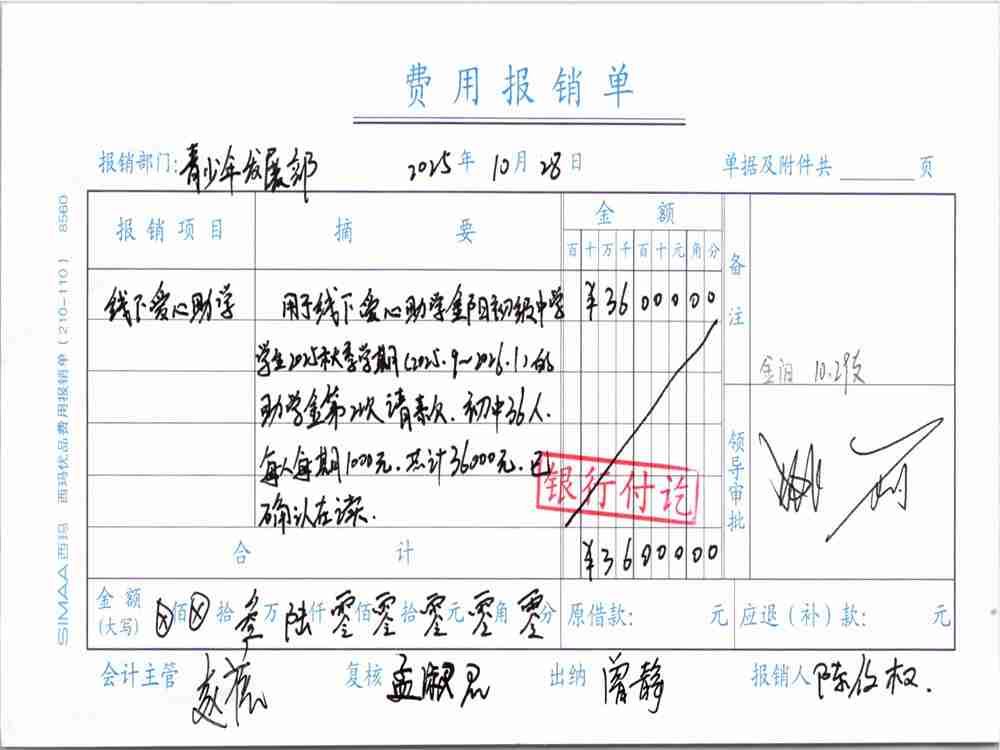 费用报销单
报销部门:青少年发展部 2025年10月28日 单据及附件共 页
报销项目 摘要 金额 备注
百十万千百十元角分
线下爱心助学 用于线下爱心助学金阳初级中学 ¥3600000
学生2025秋季学期(2025.9~2026.1)的
金阳 10.29支
助学金第2次请款.初中36人.
每人每期1000元.共计36000元.已
确认在读.
银行付讫
领导审批
合计 ¥3600000
金额(大写) ⊗佰⊗拾叁万陆仟零佰零拾零元零角零分 原借款: 元 应退(补)款: 元
会计主管 复核 孟淑君 出纳 曾静 报销人 陈俊权.
SIMAA西玛 西玛优品费用报销单(210-110) 8560